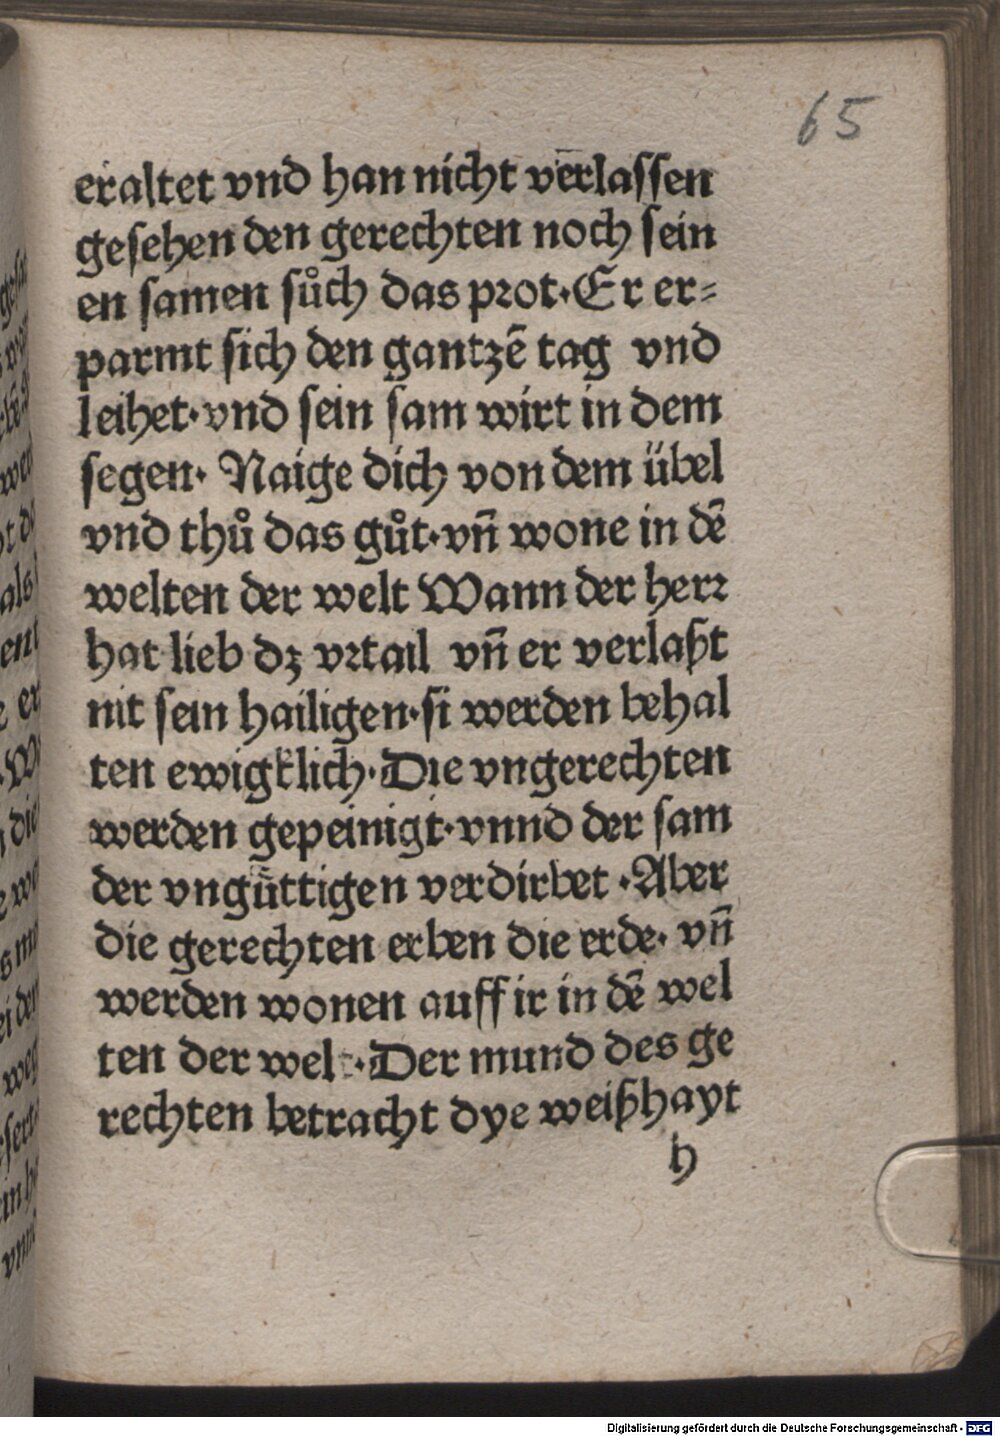 65
eraltet vnd han nicht ver̄lassen
gesehen den gerechten noch sein
en samen sůch das prot·Er er⸗
parmt sich den gantzē tag vnd
leihet·vnd sein sam wirt in dem
segen· Naige dich von dem übel
vnd thů das gůt·vn̄ wone in dē
welten der welt Wann der herr
hat lieb dz vrtail vn̄ er verlaßt
nit sein hailigen·si werden behal
ten ewigklich·Die vngerechten
werden gepeinigt·vnnd der sam
der vngüttigen verdirbet ·Aber
die gerechten erben die erde· vn̄
werden wonen auff ir in dē wel
ten der welt·Der mund des ge
rechten betracht dye weißhayt
h
Digitalisierung gefördert durch die Deutsche Forschungsgemeinschaft - DFG